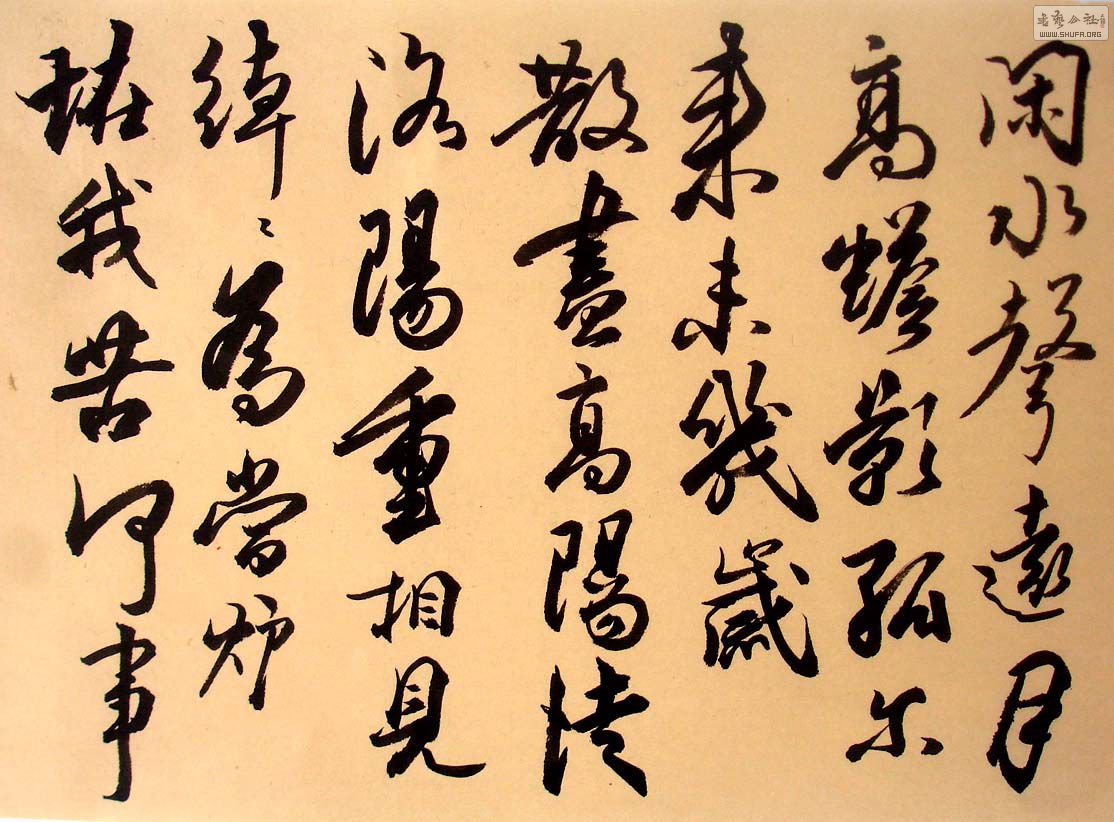 閑水聲遠月
高蟾影孤尔
来未幾歲
散盡高陽徒
洛陽重相見
綽〻為當炉
恠我苦何事
書藝公社
WWW.SHUFA.ORG